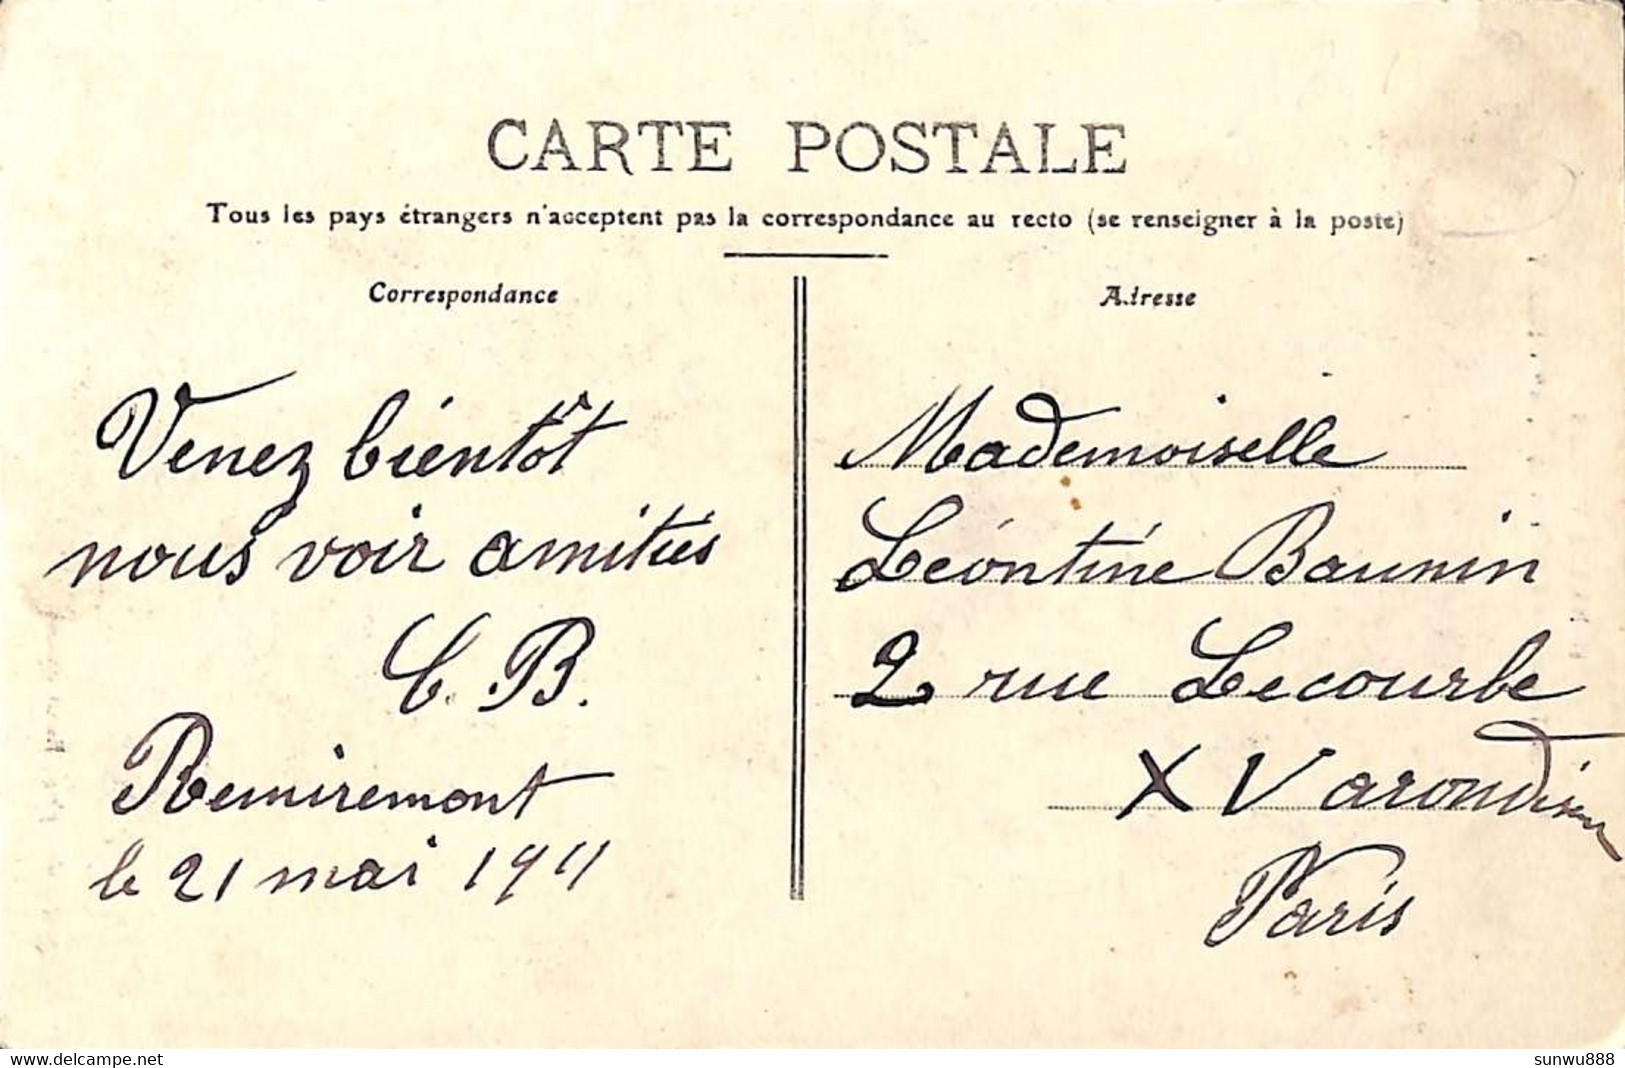 CARTE POSTALE
Tous les pays étrangers n'acceptent pas la correspondance au recto (se renseigner à la poste)
Correspondance
Venez bientôt
nous voir amitiés
C. B.
Remiremont
le 21 mai 1911
Adresse
Mademoiselle
Léontine Baumin
2 rue Lecourbe
XV arondism
Paris
sunwu888